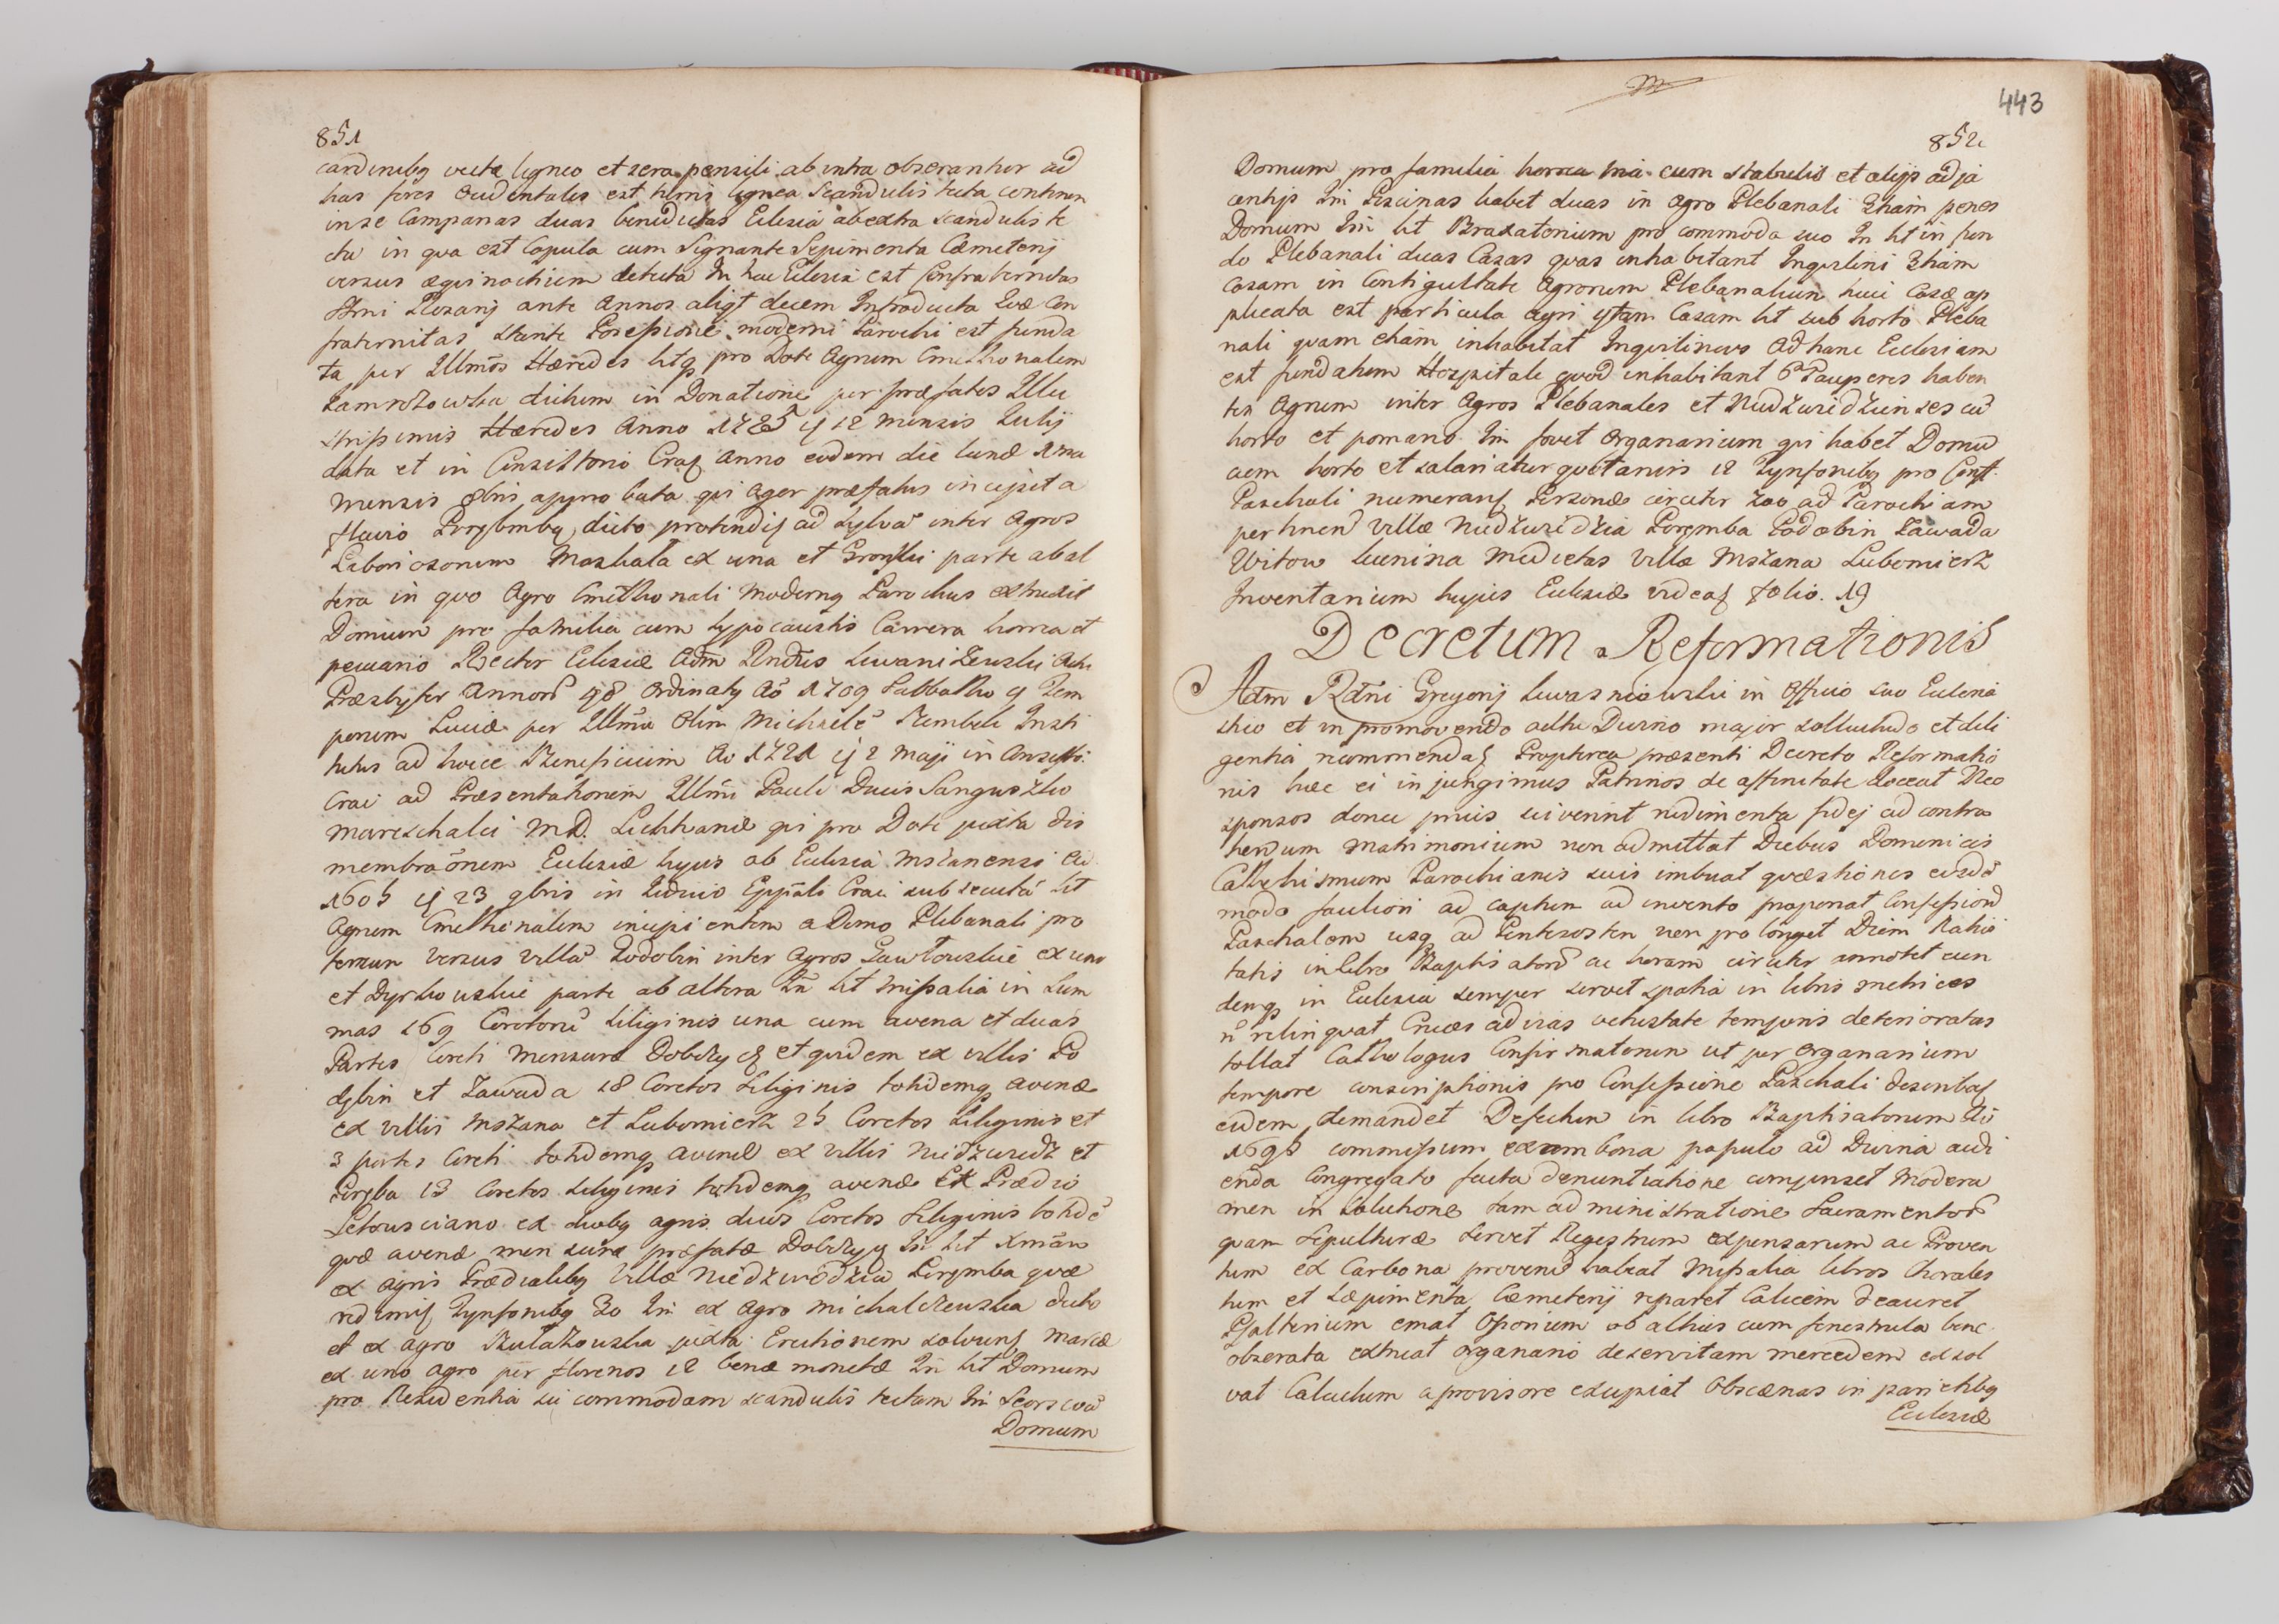 851
cardinibq vecte ligneo et sera pensili ab intra obserantur ad
has fores occidentales est turris lignea scandulis tecta continen
in se Campanas duas benedictas Eclesia ab extra scandulis te
cta in qua est Copula cum Signante Sepimenta Cæmeterij
versus æquinoctium detecta In hac Eclesia est Confraternitas
Stmi Rosarij ante Annos aliqt decem Introducta quæ Con
fraternitas stante Possessione moderni Parochi est funda
ta per Illmos Hæredes htq pro Dote Agrum Cmethonalem
dictum in Donatione per præfatos Illu
strissimos Hæredes Anno 1725 12 mensis Julij
data et in Consistorio Crac Anno eodem die lunæ 1ma
Mensis 8bris approbata qui Ager præfatus incipit a
fluvio dicto protendis ad Sylvã inter Agros
Laboriosorum Maskala ex una et parte ab al
tera in quo Agro Cmethonali Modernq Parochus extruxit
Domum pro familia cum hypocaustis Camera horrea et
pecuario Rector Eclesiæ Adm Rndus
Præsbyter Annorũ 48 Ordinatq Aõ 1709 Sabbatho 4 Tem
porum Luciæ per Illmũ Olim Michaelẽ Szembek Insti
tutus ad hocce Beneficium Ao 1721 2 Maji in Consisto:
Crac ad Præsentationem Illmi Pauli Ducis Sanguszko
Mareschalci M.D. Lithvaniæ qui pro Dote juxta dis
membraõnem Eclesiæ hujus ab Eclesia Mszanensi Ao
1605 23 9bris in Eppali Crac subsecutã ht
Agrum Cmethonalem incipientem a Domo Plebanali pro
tensum versus villã Podobin inter Agros ex una
et parte ab altera In ht Missalia in Sum
mas 169 Coretorũ siliginis una cum avena et duas
Partes Coreti Mensuræ Dobczyc et quidem ex villis Po
dobin et Zawada 18 Coretos siliginis totidemq avenæ
ex villis Mszana et Lubomierz 25 Coretos Siliginis et
3 partes Coreti totidemq avenæ ex villis Niedzwiedz et
Poręba 13 Coretos siliginis totidemq avenæ Ex Prædio
ex duobq agris duos Coretos siliginis totidẽ
quæ avenæ mensuræ præfatæ Dobczyc In ht
ex agris Prædialibq Villæ Poręmba quæ
Tynfonibq 30 In ex Agro Michalczewska dicto
et ex agro juxta Erectionem solvuns Marcæ
ex uno agro per florenos 12 bonæ monetæ In ht Domum
pro Residentia sui commodam scandulis tectam In
Domum
443
852
Domum pro familia horrea cum stabulis et alijs adja
centijs In Piscinas habet duas in agro Plebanali Etiam penes
Domum In ht Braxatorium pro commodo suo In ht in fun
do Plebanali duas Casas quas inhabitant Inquilini Etiam
Casam in Contiguitate Agrorum Plebanalium huic Casæ ap
plicata est particula agri Casam ht sub horto Pleba
nali quam etiam inhabitat Inquilinus Ad hanc Ecclesiam
est fundatum Hospitale quod inhabitant 6 Pauperes haben
tes Agrum inter Agros Plebanales et cũ
horto et pomario In fovet Organarium qui habet Domũ
cum horto et salariatur quotannis 12 Tynfonibq pro Conf:
Paschali numerans Personæ circiter 700 ad Parochiam
pertinent Villæ Poręmba Podobin Zawada
Witow medietas Villæ Mszana Lubomierz
Inventarium hujus Eclesiæ videas folio. 19
Decretum Reformationis
Adm Rdni Gregorij in Officio suo Eclesia
stico et in promovendo cultu Divino major sollicitudo et dili
gentia recommendas Propterea præsenti Decreto Reformatio
nis hæc ei injungimus Patrinos de affinitate doceat Neo
sponsos donec prius sciverint rudimenta fidej ad contra
hendum Matrimonium non admittat Diebus Dominicis
Cathechismum Parochianis suis imbuat quæstiones eisdẽ
modo faciliori ad captum ad invento proponat Confessionẽ
Paschalem usq ad Pentecosten non prolonget Diem Nativi
tatis in libro Baptisatorũ ac horam circiter annotet eun
demq in Eclesia semper servet spatia in libris metrices
ñ relinquat Cruces ad vias vetustate temporis deterioratas
tollat Cathologus Confirmatorum ut per Organarium
tempore conscriptionis pro Confessione Paschali describas
eidem demandet Defectum in libro Baptisatorum Ao
1695 commissum ex ambona populo ad Divina audi
enda Congregato facta denuntiatione compenset Modera
men in Solutione tam administratione Sacramentorũ
quam Sepulturæ servet Regestrum expensarum ac Proven
tum ex Carbona provenien habeat Missalia libros Chorales
tum et sæpimenta Cæmeterij reparet Calicem deauret
Psalterium emat Ostorium ab altius cum fenestrula bene
obserata extruat Organario deservitam mercedem exsol
vat Calculum a provisore excipiat Obscænas in parietibq
Eclesiæ